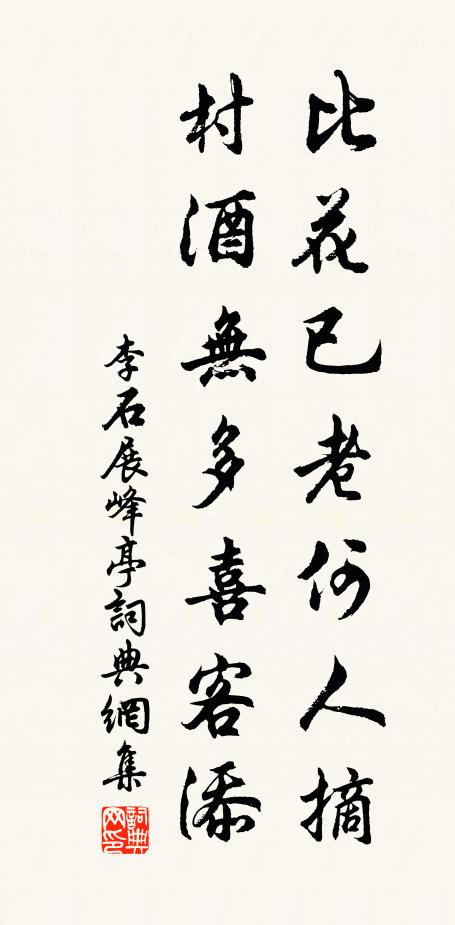 比花已老何人摘
村酒無多喜客添
李石展峰亭詞典網集
詞典网印